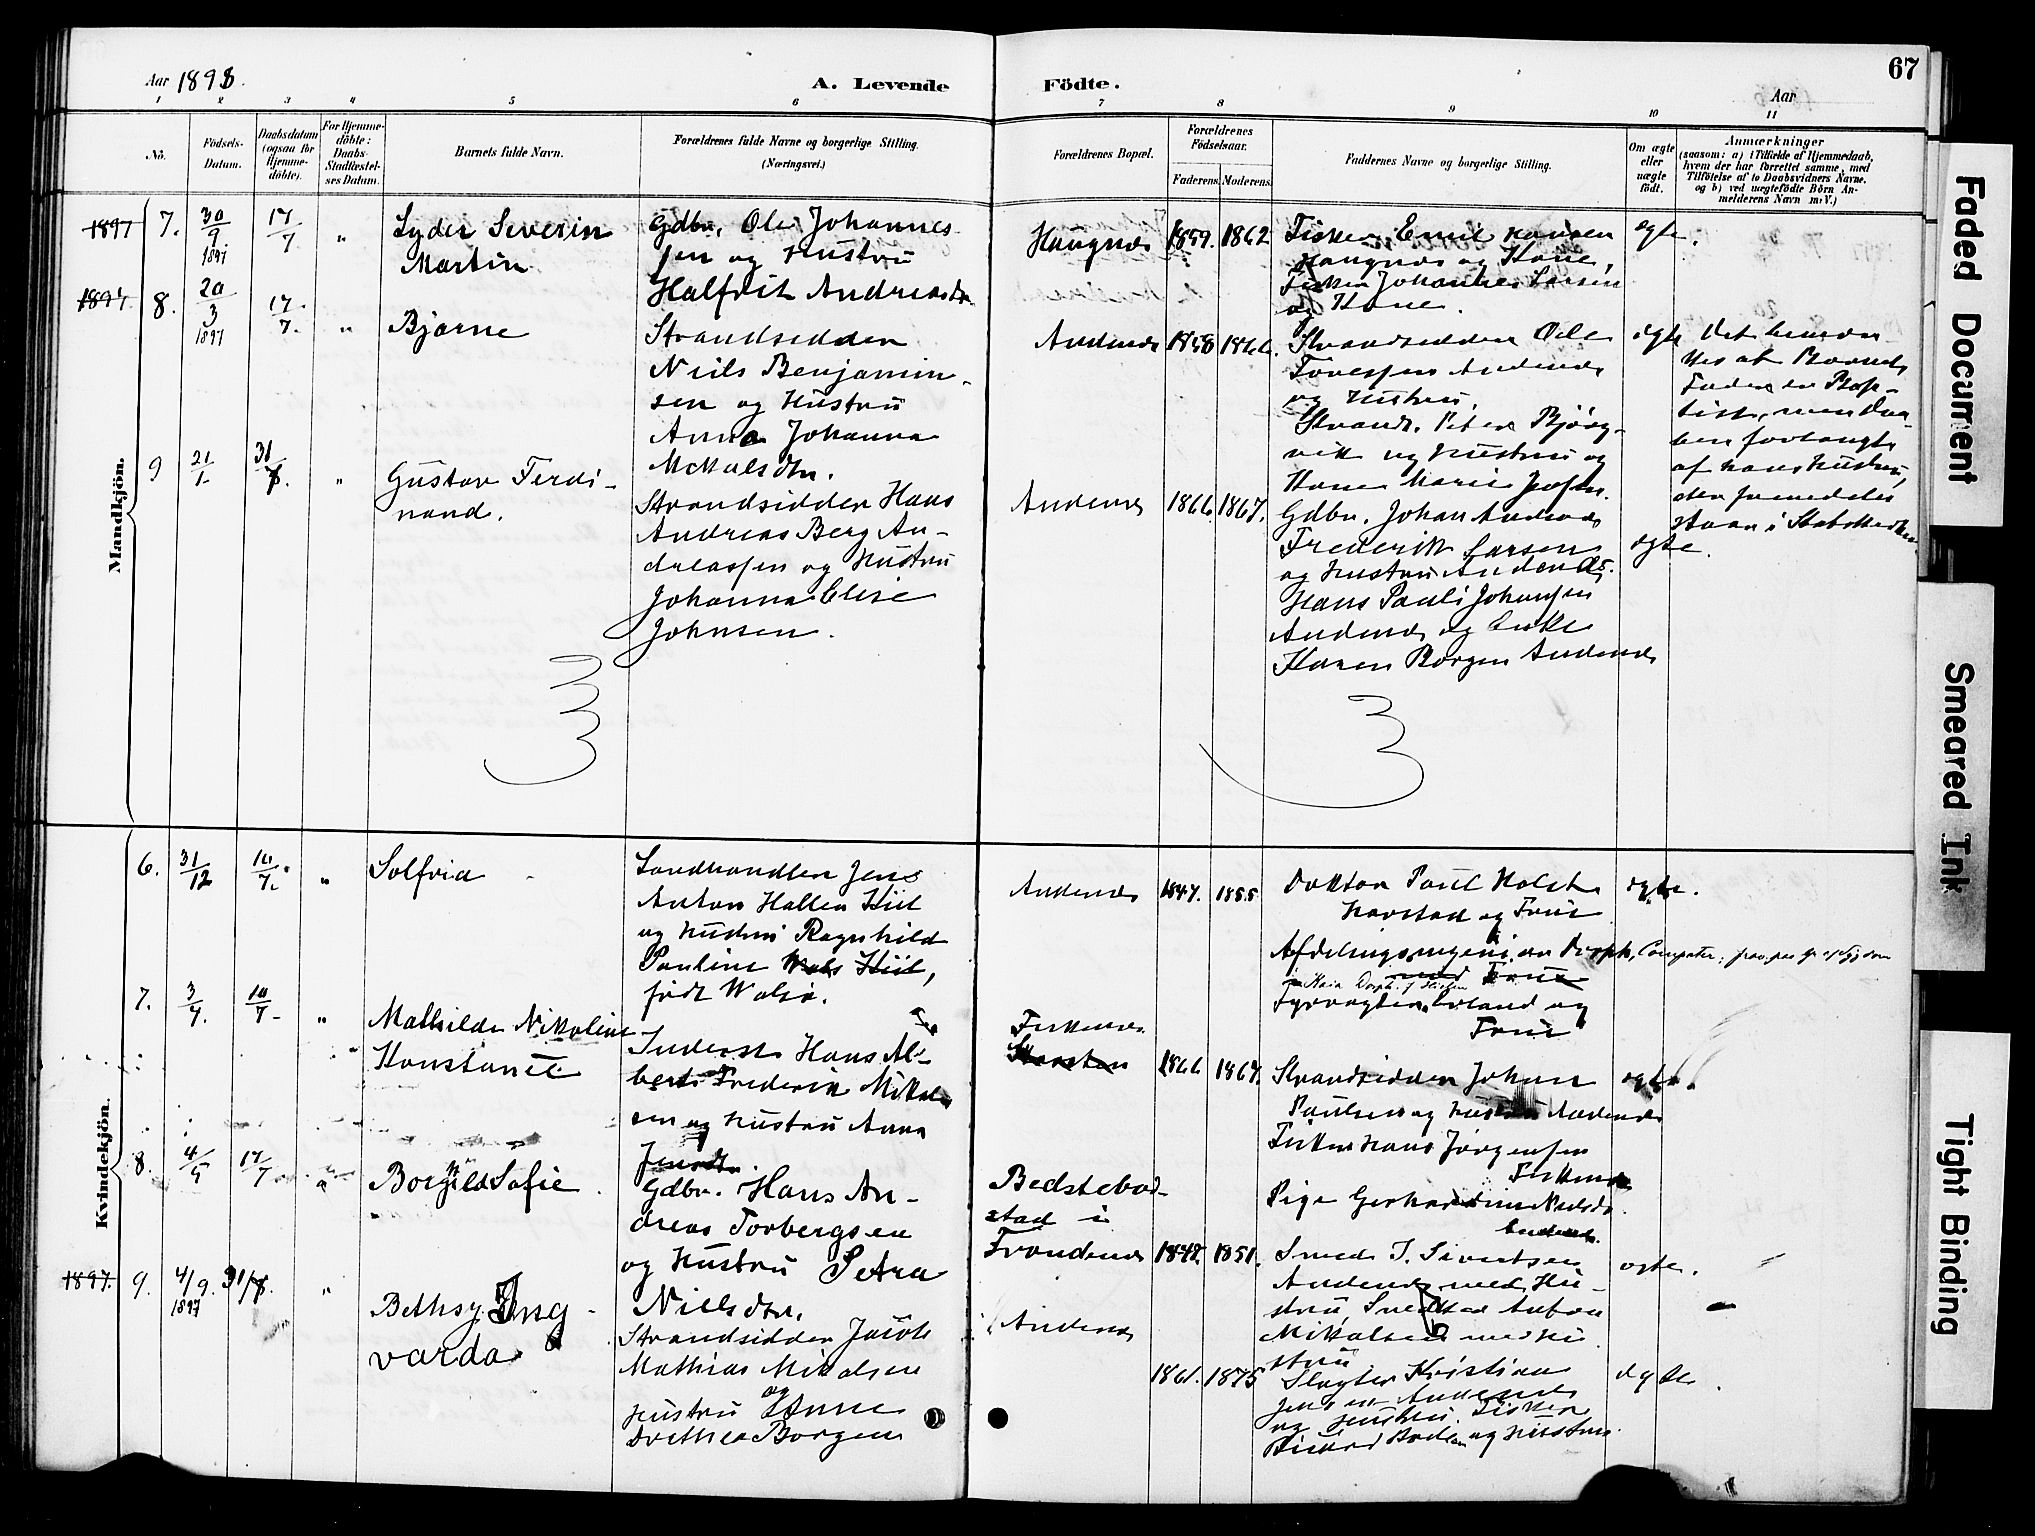 67
Aar 1898.
A. Levende Födte.
Aar
1 2 3 4 5 6 7 8 9 10 11
No.
Födsels-Datum.
Daabsdatum (ogsaa for Hjemme-döbte).
For Hjemme-döbte: Daabs-Stadfæstel-ses Datum.
Barnets fulde Navn.
Forældrenes fulde Navne og borgerlige Stilling.
(Næringsvei.)
Forældrenes Bopæl.
Forældrenes Födselsaar.
Faderens. Moderens.
Faddernes Navne og borgerlige Stilling.
Om ægte eller uægte födt.
Anmærkninger
(saasom: a) i Tilfælde af Hjemmedaab,
hvem der har forrettet samme, med
Tilföielse af to Daabsvidners Navne.
og b) ved uægtefödte Börn An-
melderens Navn m. V.)
Mandkjön.
1897 7. 30/9 1897 17/7 "
Lyder Severin
Martin
Gdbr. Ole Johannes-
sen og Hustru
Halfrit Andreasdtr.
Haugnes 1859. 1862
Fisker Emil Hansen
Haugnes og Kone,
Fisker Johannes Larsen
og Kone.
ægte.
1897 8. 20/3 1897 17/7. "
Bjarne
Strandsidder
Niels Benjamin-
sen og Hustru
Anna Johanna
Mikalsdtr.
Andenes 1858 1866.
Strandsidder Ole
Tovessen Andenes
og Hustru,
Strands. Peter Bjørg-
vik og Hustru og
Kone Marie
ægte
Det bemær-
kes at Barnets
Fader er Bap-
tist, men Daa-
ben forlangt
af hans Hustru,
der fremdeles
staar i Statskirken
9 21/1. 31/7. "
Gustav Ferdi-
nand.
Strandsidder Hans
Andreas Berg An-
dreassen og Hustru
Johanna Elise
Johnsen.
Andenes 1866. 1867.
Gdbr. Johan Andenes
Frederik Larsen
og Hustru Andenes.
Hans Pauli Johansen
Andenes og Enke
Karen Borgen Andenes
ægte.
Kvindekjön.
6. 31/12 10/7. "
Solfrid
Landhandler Jens
Anton Hallen Kiil
og Hustru Ragnhild
Pauline Kiil,
født Walsø.
Andenes 1847. 1855
Doktor Paul Holst
Harstad og Frue
Afdelingsingeniør
med Frue
Fyrvogter Erland og
Frue
ægte.
7. 3/4. 10/7 "
Mathilde Nikoline
Konstance
Inderst Hans Al-
bert Frederik Mikal
sen og Hustru Anna
Jensdtr.
Fiskenes
1866 1867.
Strandsidder Johan
Paulsen og Hustru Andenes
Fisker Hans Jørgensen
Fiskenes
Pige
Andenes.
ægte.
8. 4/5 17/7 "
Borghild Sofie
Gdbr. Hans An-
dreas Torbergsen
og Hustru Petra
Nielsdtr.
Bedstebod-
stad i
Trondenes 1848. 1851.
Smed J. Sivertsen
Andenes med Hu-
stru, Snedker Anton
Mikalsen med Hu
stru
ægte.
1897. 9. 4/9. 1897 31/7. "
Bethsy Ing-
varda
Strandsidder Jacob
Mathias Mikalsen
og
Hustru Anne
Dorthea Borgen
Andenes
1861. 1875
Slagter Kristian
Jensen Andenes
og Hustru. Fisker
og Hustru.
ægte.
Faded Document
Smeared Ink
Tight Binding